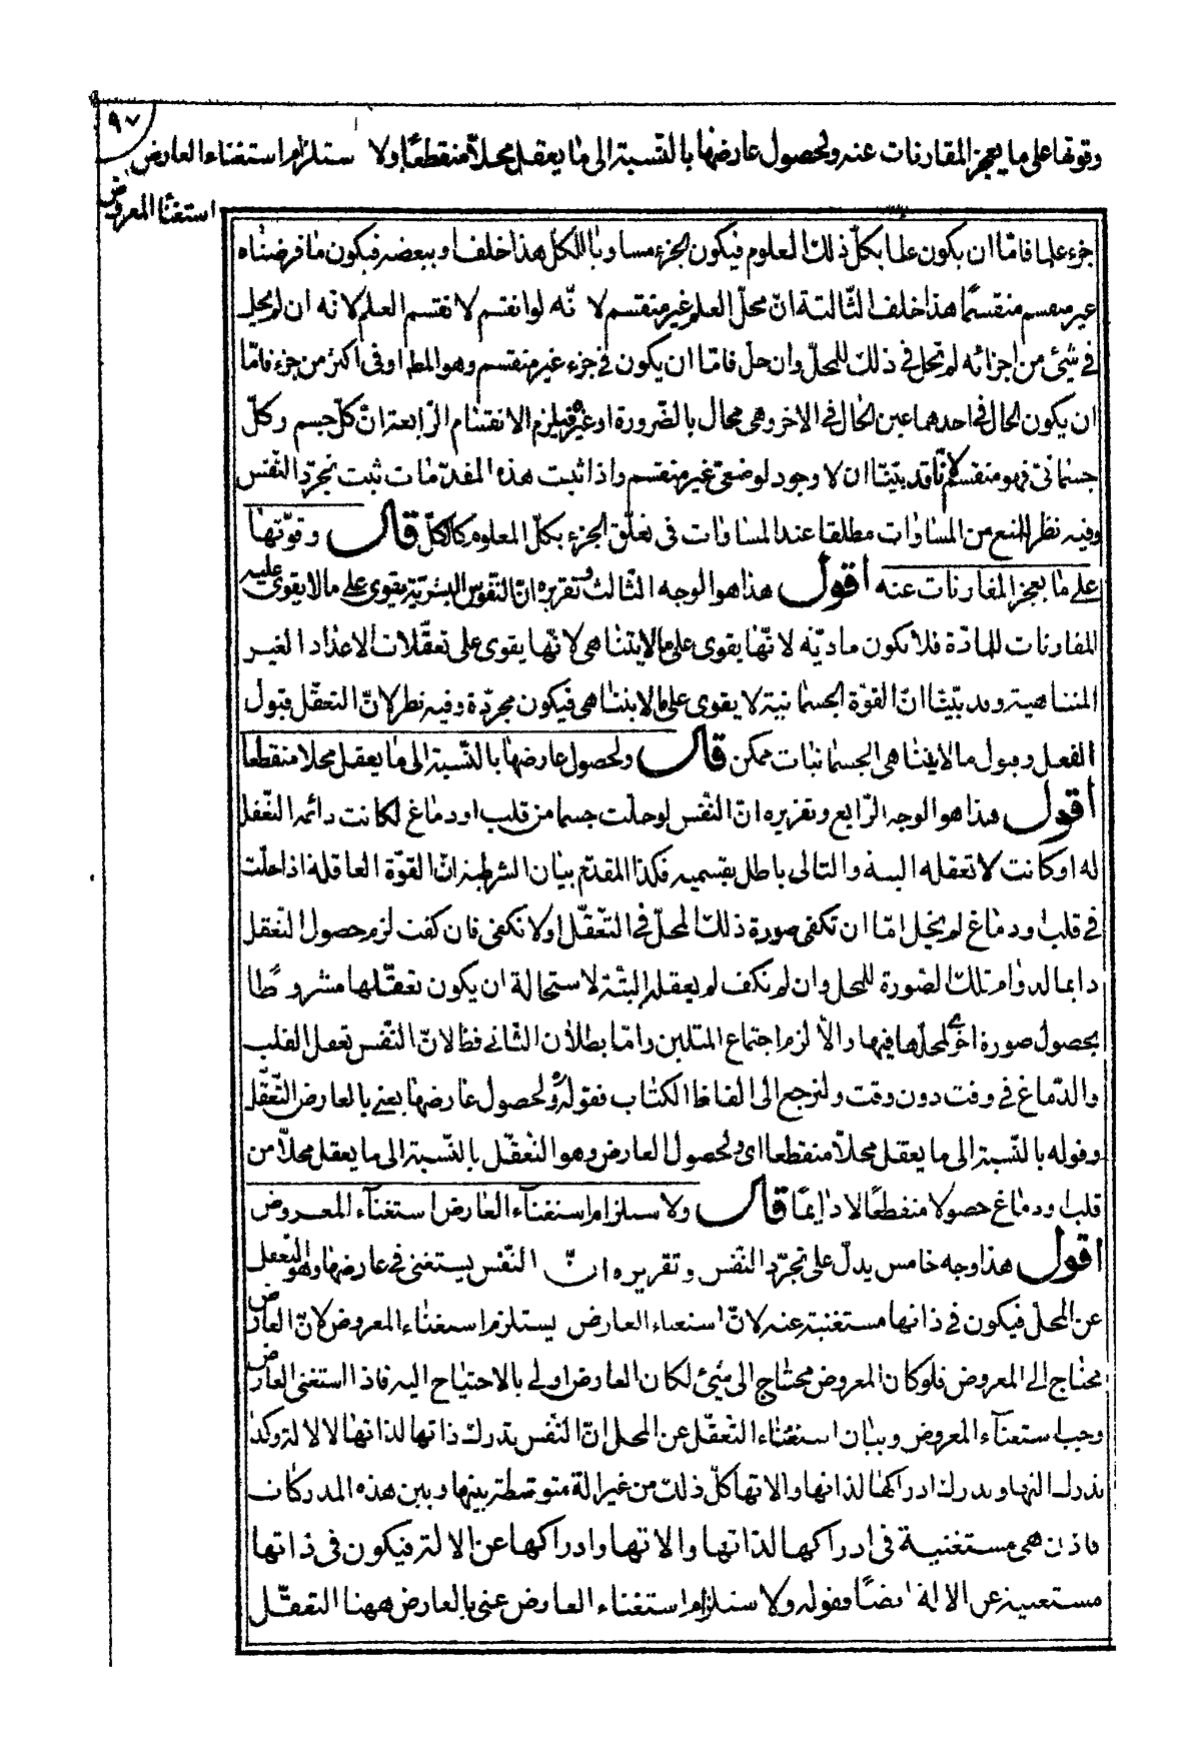 ٩٧
وقوتها على ما يعجز المقارنات عنه ولحصول عارضها بالنسبة الى ما يعقل محلا منقطعا ولاستلزام استغناء العارض
استغناء المعروض
جزء علما فامّا ان يكون علما بكلّ ذلك المعلوم فيكون الجزء مساويا للكل هذا خلف او ببعضه فيكون ما فرضناه
غير منقسم منقسمًا هذا خلف الثّالثة انّ محلّ العلم غير منقسم لانّه لو انقسم لانقسم العلم لانّه ان لم يحل
في شئ من اجزائه لم تحل في ذلك المحلّ وان حلّ فامّا ان يكون في جزء غير منقسم وهو المط او في اكثر من جزء فامّا
ان يكون الحال في احدهما عين الحال في الاخر وهى محال بالضّرورة او غيره فيلزم الانقسام الرّابعة انّ كلّ جسم وكلّ
جسمانىّ فهو منقسم لانّا قد بيّنّا ان لا وجود لوضعىّ غير منقسم واذا ثبت هذه المقدّمات ثبت تجرّد النّفس
وفيه نظر للمنع من المساوات مطلقا عند المساوات فى تعلّق الجزء بكلّ المعلوم كالكلّ قال وقوّتها
على ما يعجز المقارنات عنه اقول هذا هو الوجه الثّالث وتقريره انّ النّفوس البشريّة يقوى على مالا يقوى عليه
المقارنات للمادّة فلا تكون ماديّه لانّها يقوى على مالا يتناهى لانّها يقوى على تعقّلات الاعداد الغير
المتناهية وقد بيّنّا انّ القوّة الجسمانية لا يقوى على مالا يتناهى فيكون مجرّدة وفيه نظر لانّ التعقّل قبول
الفعل وقبول مالا يتناهى الجسمانيات ممكن قال ولحصول عارضها بالنّسبة الى ما يعقل محلا منقطعا
اقول هذا هو الوجه الرّابع وتقريره انّ النّفس لو حلّت جسما من قلب او دماغ لكانت دائمه التعّقل
له او كانت لا تعقله البتة والتالى باطل بقسميه فكذا المقدّم بيان الشرطية انّ القوّة العاقلة اذا حلّت
في قلب او دماغ لم يخل امّا ان تكفى صورة ذلك المحلّ في التعّقل او لا تكفى فان كفت لزم حصول التّعقل
دايما لدوام تلك الصّورة للمحل وان لم تكف لم يعقله البتّة لاستحالة ان يكون تعقّلها مشروطا
بحصول صورة اخرى لمحلها فيها والّا لزم اجتماع المثلين وامّا بطلان الثّانى فظ لانّ النّفس تعقل القلب
والدّماغ في وقت دون وقت ولنرجع الى الفاظ الكتاب فقوله ولحصول عارضها يعنى بالعارض التّعقّل
وقوله بالنّسبة الى ما يعقل محلاّ منقطعا اى ولحصول العارض وهو التّعقّل بالنّسبة الى ما يعقل محلاّ من
قلب او دماغ حصولا منقطعًا لا دائمًا قال ولاستلزام استغناء العارض استغناء المعروض
اقول هذا وجه خامس يدلّ على تجرّد النّفس وتقريره انّ النّفس يستغنى في عارضها وهو التّعقل
عن المحلّ فيكون في ذاتها مستغنية عنه لانّ استغناء العارض يستلزم استغناء المعروض لانّ العارض
محتاج الى المعروض فلو كان المعروض محتاج الى شئ لكان العارض اولى بالاحتياج اليه فاذا استغنى العارض
وجب استغناء المعروض وبيان استغناء التّعقّل عن المحل انّ النّفس تدرك ذاتها لذاتها لا لالة وكذا
تدرك التها وتدرك ادراكها لذاتها والاتها كلّ ذلك من غير الة متوسّطة بينها وبين هذه المدركات
فاذن هى مستغنية فى ادراكها لذاتها والاتها وادراكها عن الالة فيكون فى ذاتها
مستغنية عن الالة ايضًا فقوله ولاستلزام استغناء العارض عنى بالعارض ههنا التعقّل